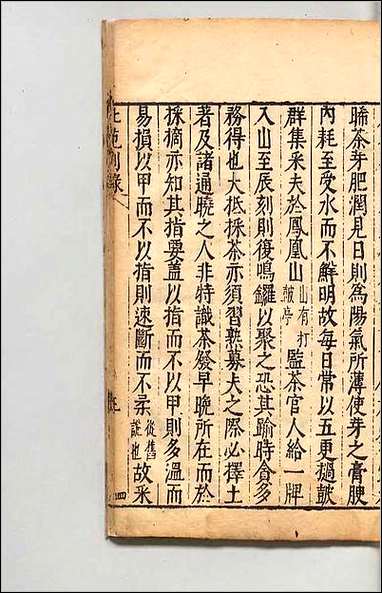 晞茶芽肥潤見日則為陽氣所薄使芽之膏腴
內耗至受水而不鮮明故每日常以五更撾鼓
群集采夫於鳳凰山山有打鼓亭監茶官人給一牌
入山至辰刻則復鳴鑼以聚之恐其踰時貪多
務得也大抵採茶亦須習熟募夫之際必擇土
著及諸通曉之人非特識茶發早晚所在而於
採摘亦知其指要蓋以指而不以甲則多溫而
易損以甲而不以指則速斷而不柔從舊說也故采
北苑別錄
四